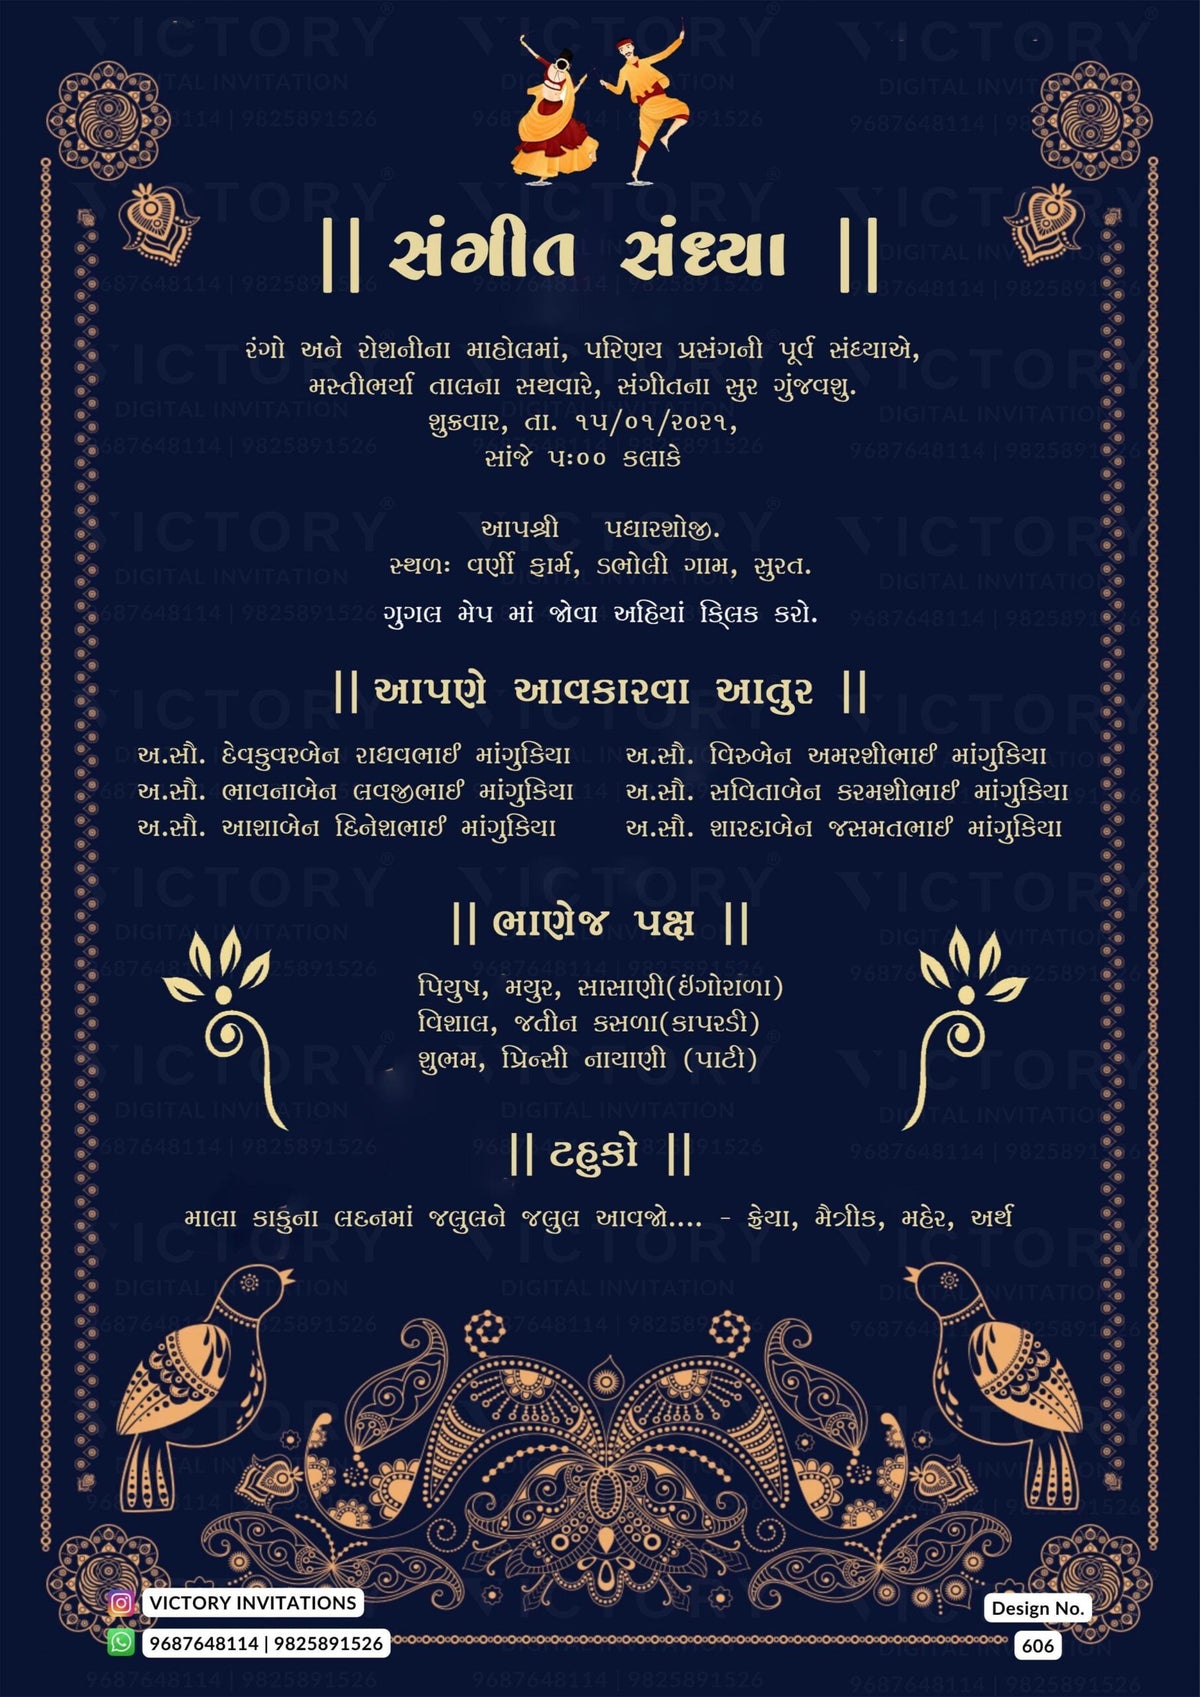 || સંગીત સંધ્યા ||
રંગો અને રોશનીના માહોલમાં, પરિણય પ્રસંગની પૂર્વ સંધ્યાએ,
મસ્તીભર્યા તાલના સથવારે, સંગીતના સુર ગુંજવશુ.
શુક્રવાર, તા. ૧૫/૦૧/૨૦૨૧,
સાંજે ૫:૦૦ કલાકે
આપશ્રી પધારશોજી.
સ્થળ: વર્ણી ફાર્મ, ડભોલી ગામ, સુરત.
ગુગલ મેપ માં જોવા અહિયાં ક્લિક કરો.
|| આપણે આવકારવા આતુર ||
અ.સૌ. દેવકુવરબેન રાઘવભાઈ માંગુકિયા
અ.સૌ. ભાવનાબેન લવજીભાઈ માંગુકિયા
અ.સૌ. આશાબેન દિનેશભાઈ માંગુકિયા
અ.સૌ. વિરુબેન અમરશીભાઈ માંગુકિયા
અ.સૌ. સવિતાબેન કરમશીભાઈ માંગુકિયા
અ.સૌ. શારદાબેન જસમતભાઈ માંગુકિયા
|| ભાણેજ પક્ષ ||
પિયુષ, મયુર, સાસાણી(ઇંગોરાળા)
વિશાલ, જતીન કસળા(કાપરડી)
શુભમ, પ્રિન્સી નાયાણી (પાટી)
|| ટહુકો ||
માલા કાકુના લદનમાં જલુલને જલુલ આવજો.... - ફ્રેયા, મૈત્રીક, મહેર, અર્થ
VICTORY INVITATIONS
9687648114 | 9825891526
Design No.
606
VICTORY
DIGITAL INVITATION
9687648114 | 9825891526